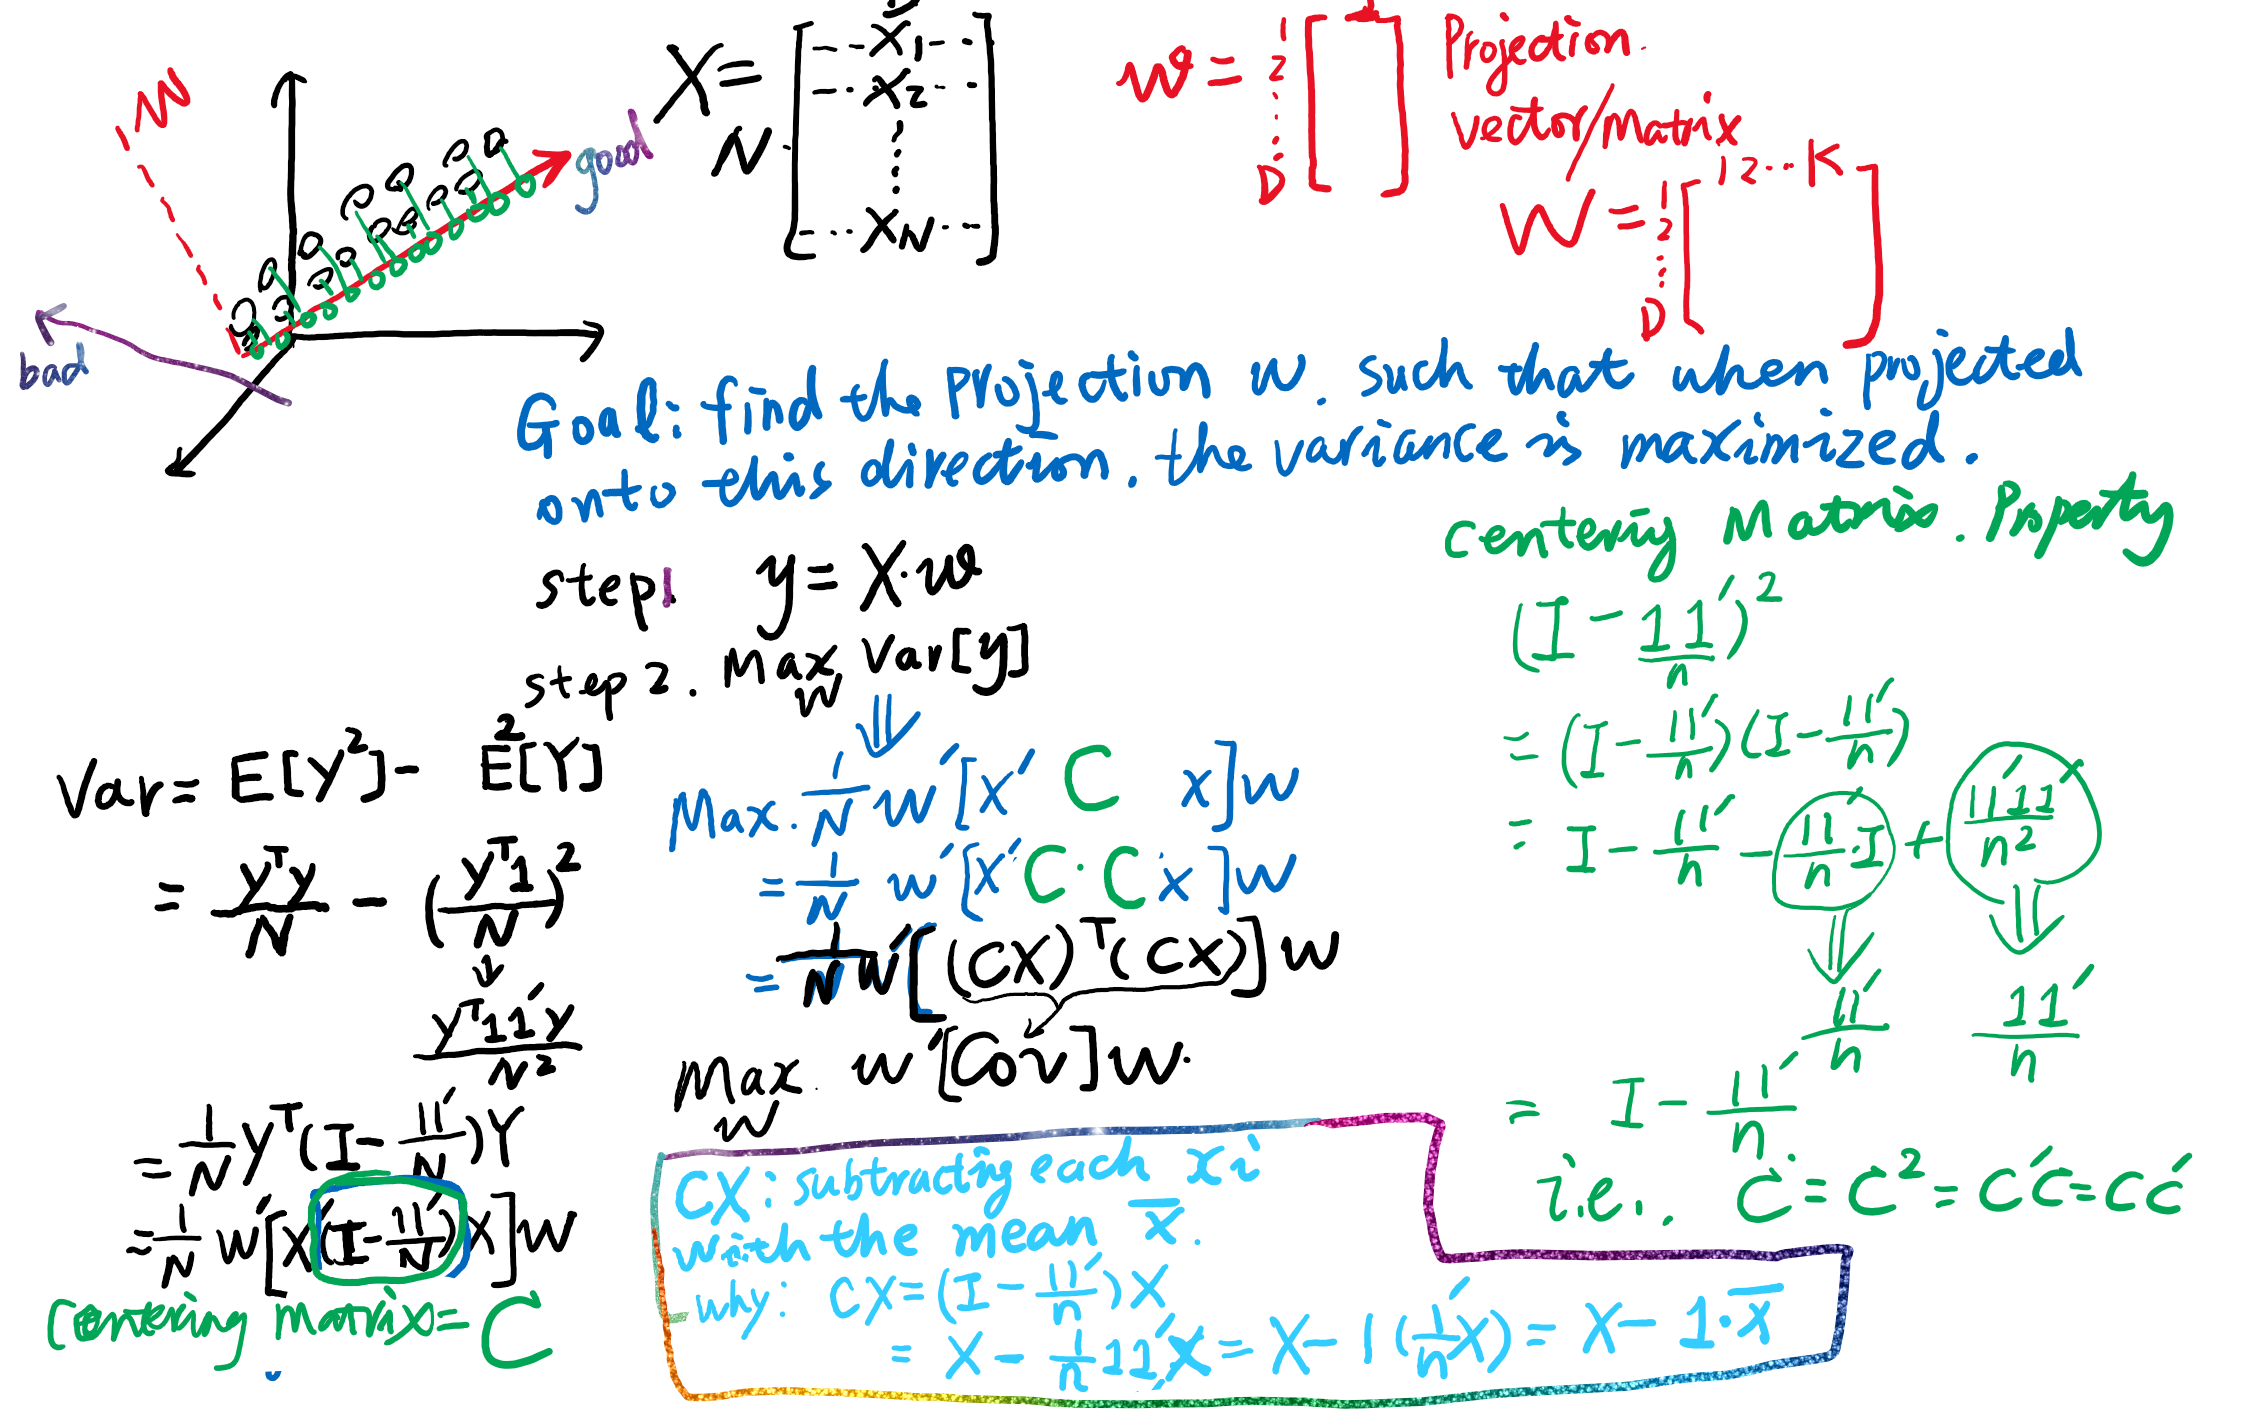 W
good
bad
X = N [ --- X1 ---
--- X2 ---
⋮
--- XN --- ]
w = 1 2 ⋮ D [ ] 1
Projection
vector/matrix
W = 1 2 ⋮ D [ ] 1 2 ... K
Goal: find the projection w. such that when projected
onto this direction, the variance is maximized.
step1 y = X·w
step 2. Max_w Var[y]
⇓
Var = E[Y²] - E²[Y]
= yᵀy/N - (yᵀ1/N)²
↓
yᵀ11'y/N²
= 1/N yᵀ(I - 11'/N)Y
= 1/N w'[X'(I - 11'/N)X]w
Centering matrix = C
Max. 1/N w'[x' C x]w
= 1/N w'[x' C·C x]w
= 1/N w'[(CX)ᵀ(CX)]w
Max_w w'[Cov]w.
CX: subtracting each xi
with the mean x̄.
why: CX = (I - 11'/n)X
= X - 1/n 11'X = X - 1(1'/n X) = X - 1·x̄
centering Matrix. Property
(I - 11'/n)²
= (I - 11'/n)(I - 11'/n)
= I - 11'/n - 11'/n·I + 11'11'/n²
⇓ ⇓
11'/n 11'/n
= I - 11'/n
i.e., C = C² = C'C = CC'